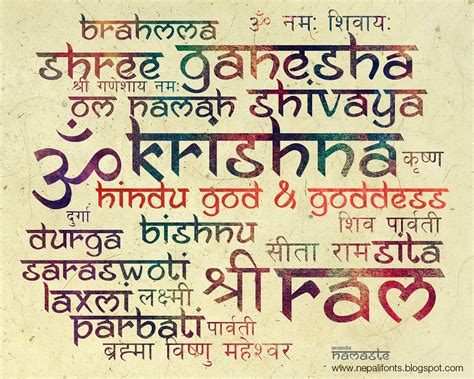 BRAHMMA
ॐ नमः शिवायः
SHREE GANESHA
श्री गणशाय नमः
OM NAMAH SHIVAYA
ॐ KRISHNA कृष्ण
HINDU GOD & GODDESS
दुर्गा BISHNU शिव पार्वती
DURGA सीता राम SITA
SARASWOTI
LAXMI लक्ष्मी श्री RAM
PARBATI पार्वती
ब्रह्मा विष्णु महेश्वर
NAMASTE
www.nepalifonts.blogspot.com